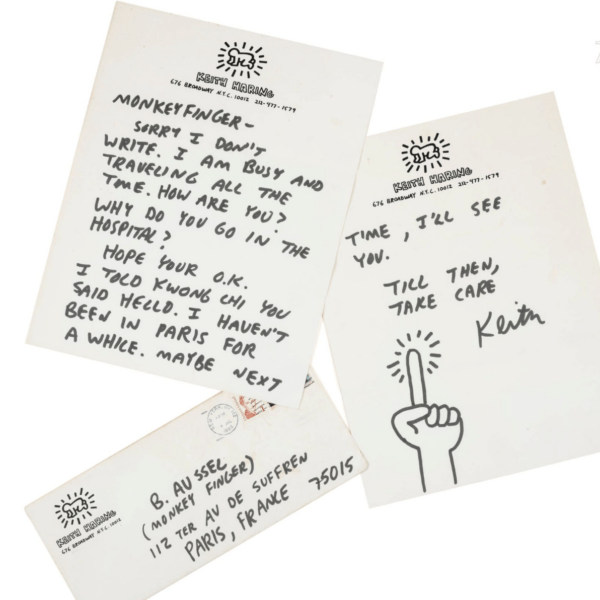 KEITH HARING
676 BROADWAY N.Y.C. 10012 212-477-1579
MONKEYFINGER-
SORRY I DON'T
WRITE. I AM BUSY AND
TRAVELING ALL THE
TIME. HOW ARE YOU?
WHY DO YOU GO IN THE
HOSPITAL?
HOPE YOUR O.K.
I TOLD KWONG CHI YOU
SAID HELLO. I HAVEN'T
BEEN IN PARIS FOR
A WHILE. MAYBE NEXT
KEITH HARING
676 BROADWAY N.Y.C. 10012 212-477-1579
TIME, I'LL SEE
YOU.
TILL THEN,
TAKE CARE
Keith
KEITH HARING
676 BROADWAY N.Y.C. 10012
B. AUSSEL
(MONKEY FINGER)
112 TER AV DE SUFFREN
PARIS, FRANCE 75015